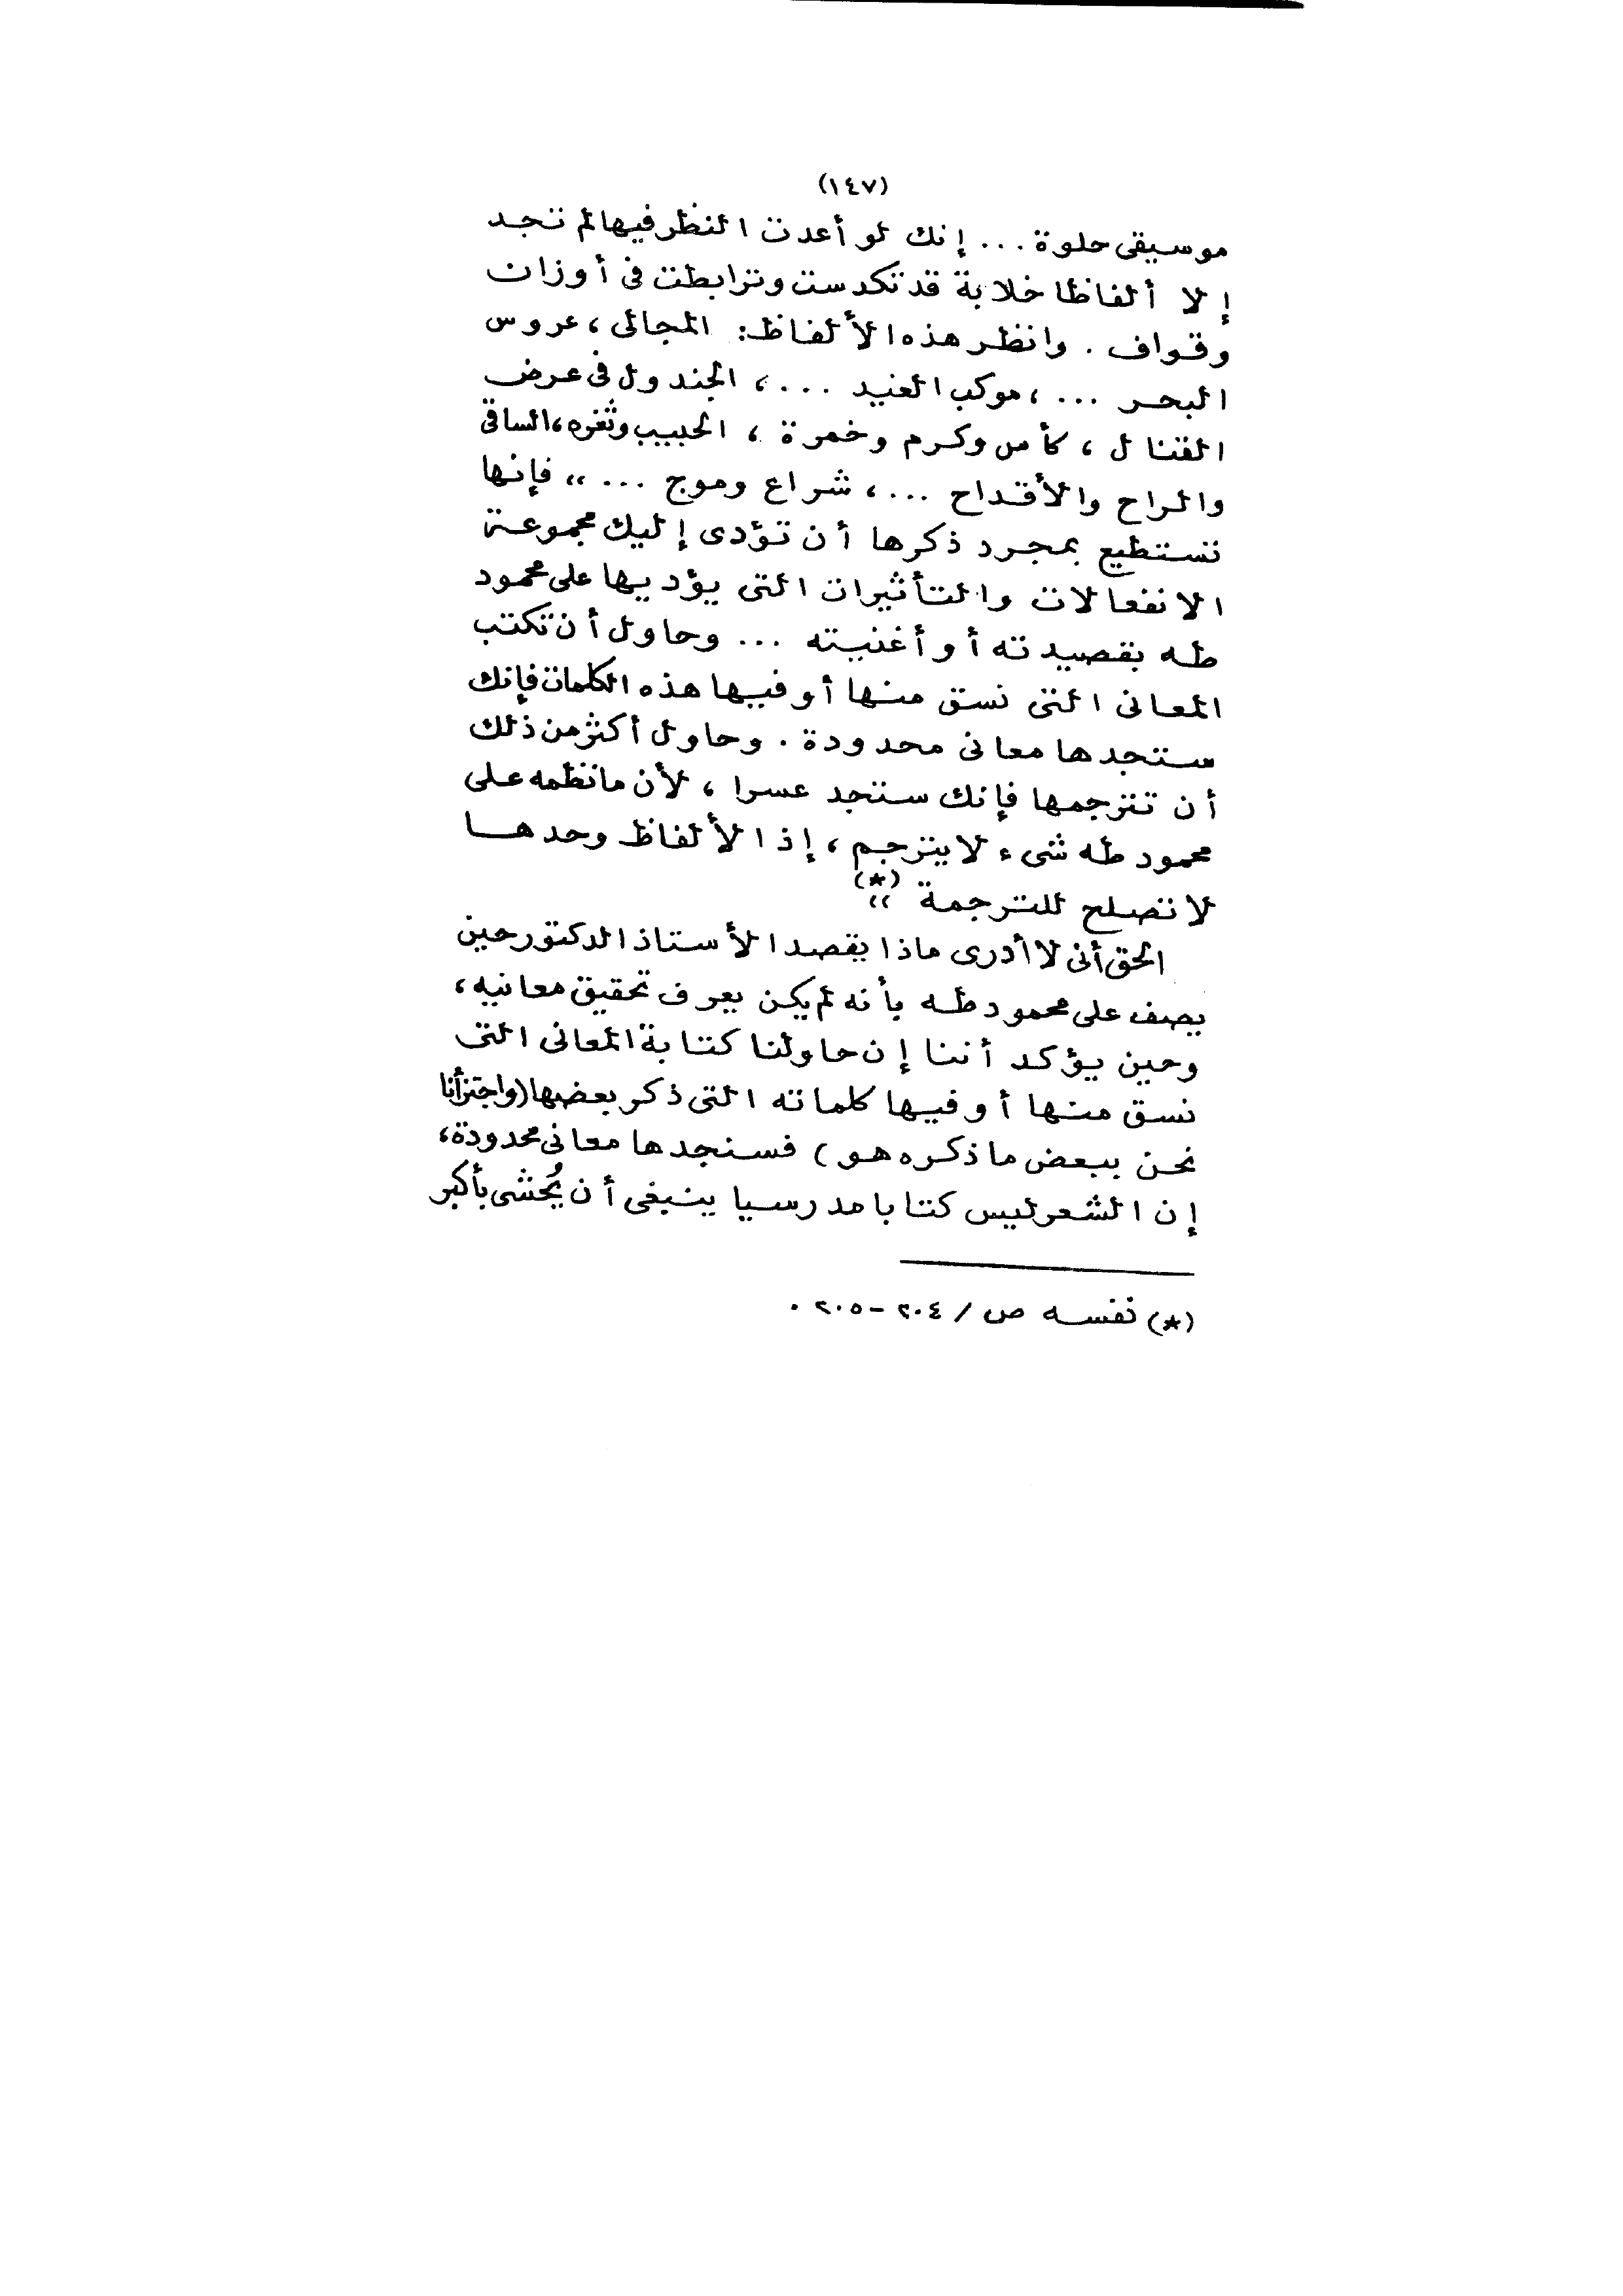 (١٤٧)
موسيقى حلوة ... إنك لو أعدت النظر فيها لم تجد
إلا ألفاظا خلابة قد تكدست وترابطت فى أوزان
وقواف . وانظر هذه الألفاظ: المجالى ، عروس
البحر ... ، موكب الغيد ... ، الجندول فى عرض
القنال ، كأس وكرم وخمرة ، الحبيب وثغره ، الساقى
والراح والأقداح ... ، شراع وموج ... ،، فإنها
تستطيع بمجرد ذكرها أن تؤدى إليك مجموعة
الانفعالات والتأثيرات التى يؤديها على محمود
طه بقصيدته أو أغنيته ... وحاول أن تكتب
المعانى التى نسق منها أو فيها هذه الكلمات فإنك
ستجدها معانى محدودة . وحاول أكثر من ذلك
أن تترجمها فإنك ستجد عسرا ، لأن ما نظمه على
محمود طه شىء لا يترجم ، إذ الألفاظ وحدها
لا تصلح للترجمة ،، (*)
الحق أنى لا أدرى ماذا يقصد الأستاذ الدكتور حين
يصف على محمود طه بأنه لم يكن يعرف تحقيق معانيه ،
وحين يؤكد أننا إن حاولنا كتابة المعانى التى
نسق منها أو فيها كلماته التى ذكر بعضها (واجتزأنا
نحن ببعض ما ذكره هو) فسنجدها معانى محدودة ،
إن الشعر ليس كتابا مدرسيا ينبغى أن يُحشى بأكبر
(*) نفسه ص / ٢٠٤ - ٢٠٥ .